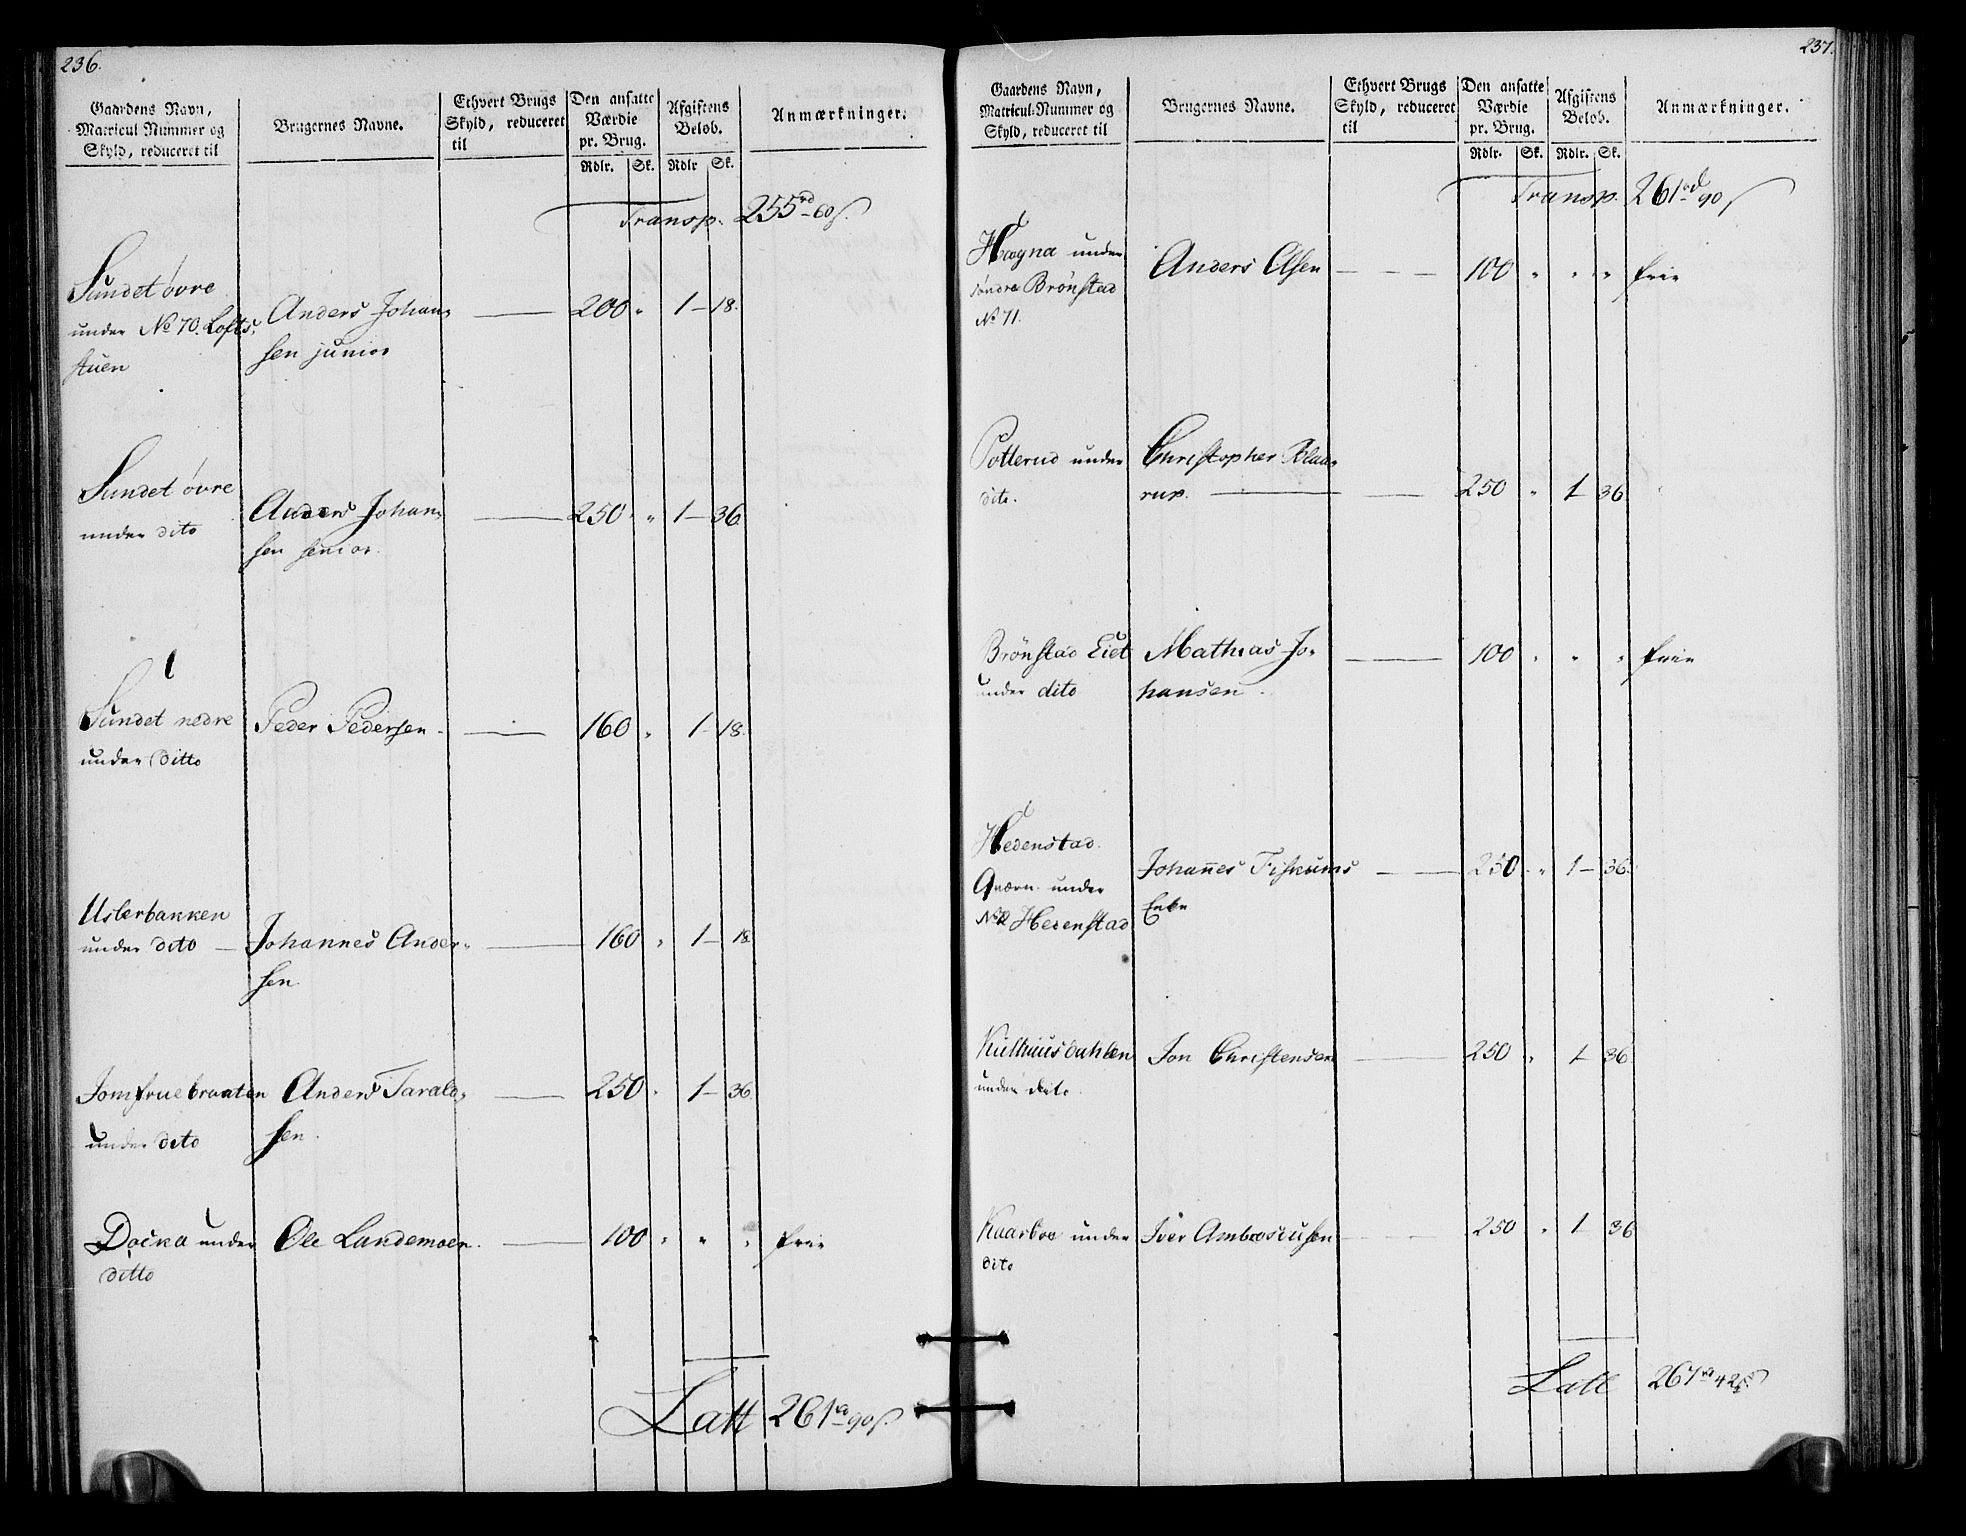 236.
Gaardens Navn, Matricul Nummer og Skyld, reduceret til
Brugernes Navne.
Ethvert Brugs Skyld, reduceret til
Den ansatte Værdie pr. Brug.
Afgiftens Beløb.
Anmærkninger.
Rdlr. Sk. Rdlr Sk.
Transp. 255rd 60s.
Sundet øvre
under No 70. Lofts-
stuen
Anders Johan-
sen junior
200 " 1 - 18.
Sundet øvre
under dito
Anders Johan-
sen senior.
250 " 1 - 36.
Sundet nedre
under Ditto
Peder Pedersen
160 " 1 - 18.
Usterbakken
under dito
Johannes Ander-
sen.
160 " 1 - 18
Jomfruebraaten
under dito
Anders Tarald-
sen.
250 " 1 - 36.
Docka under
ditto
Ole Landemoen.
100 " " " frie
Latt 261rd 90s.
237.
Gaardens Navn, Matricul-Nummer og Skyld, reduceret til
Brugernes Navne.
Ethvert Brugs Skyld, reduceret til
Den ansatte Værdie pr. Brug.
Afgiftens Beløb.
Anmærkninger.
Rdlr. Sk. Rdlr. Sk.
Transp. 261rd 90s
Hægna under
søndre Brønstad
No 71.
Anders Olsen
100 " " " frie
Potterud under
dito.
Christopher Klaa-
rup.
250 " 1 36.
Brønstad Eiet
under dito
Mathias Jo-
hansen.
100 " " " frie
Hedenstad
Qværn under
No 72 Hedenstad
Johannes Fiskums
Enke
250 " 1 - 36.
Kulhuusdahlen
under dito
Jon Christensen
250 " 1 36
Kaarboe under
dito
Iver Ambrosiusen
250 " 1 36
Latt 267rd 42s.